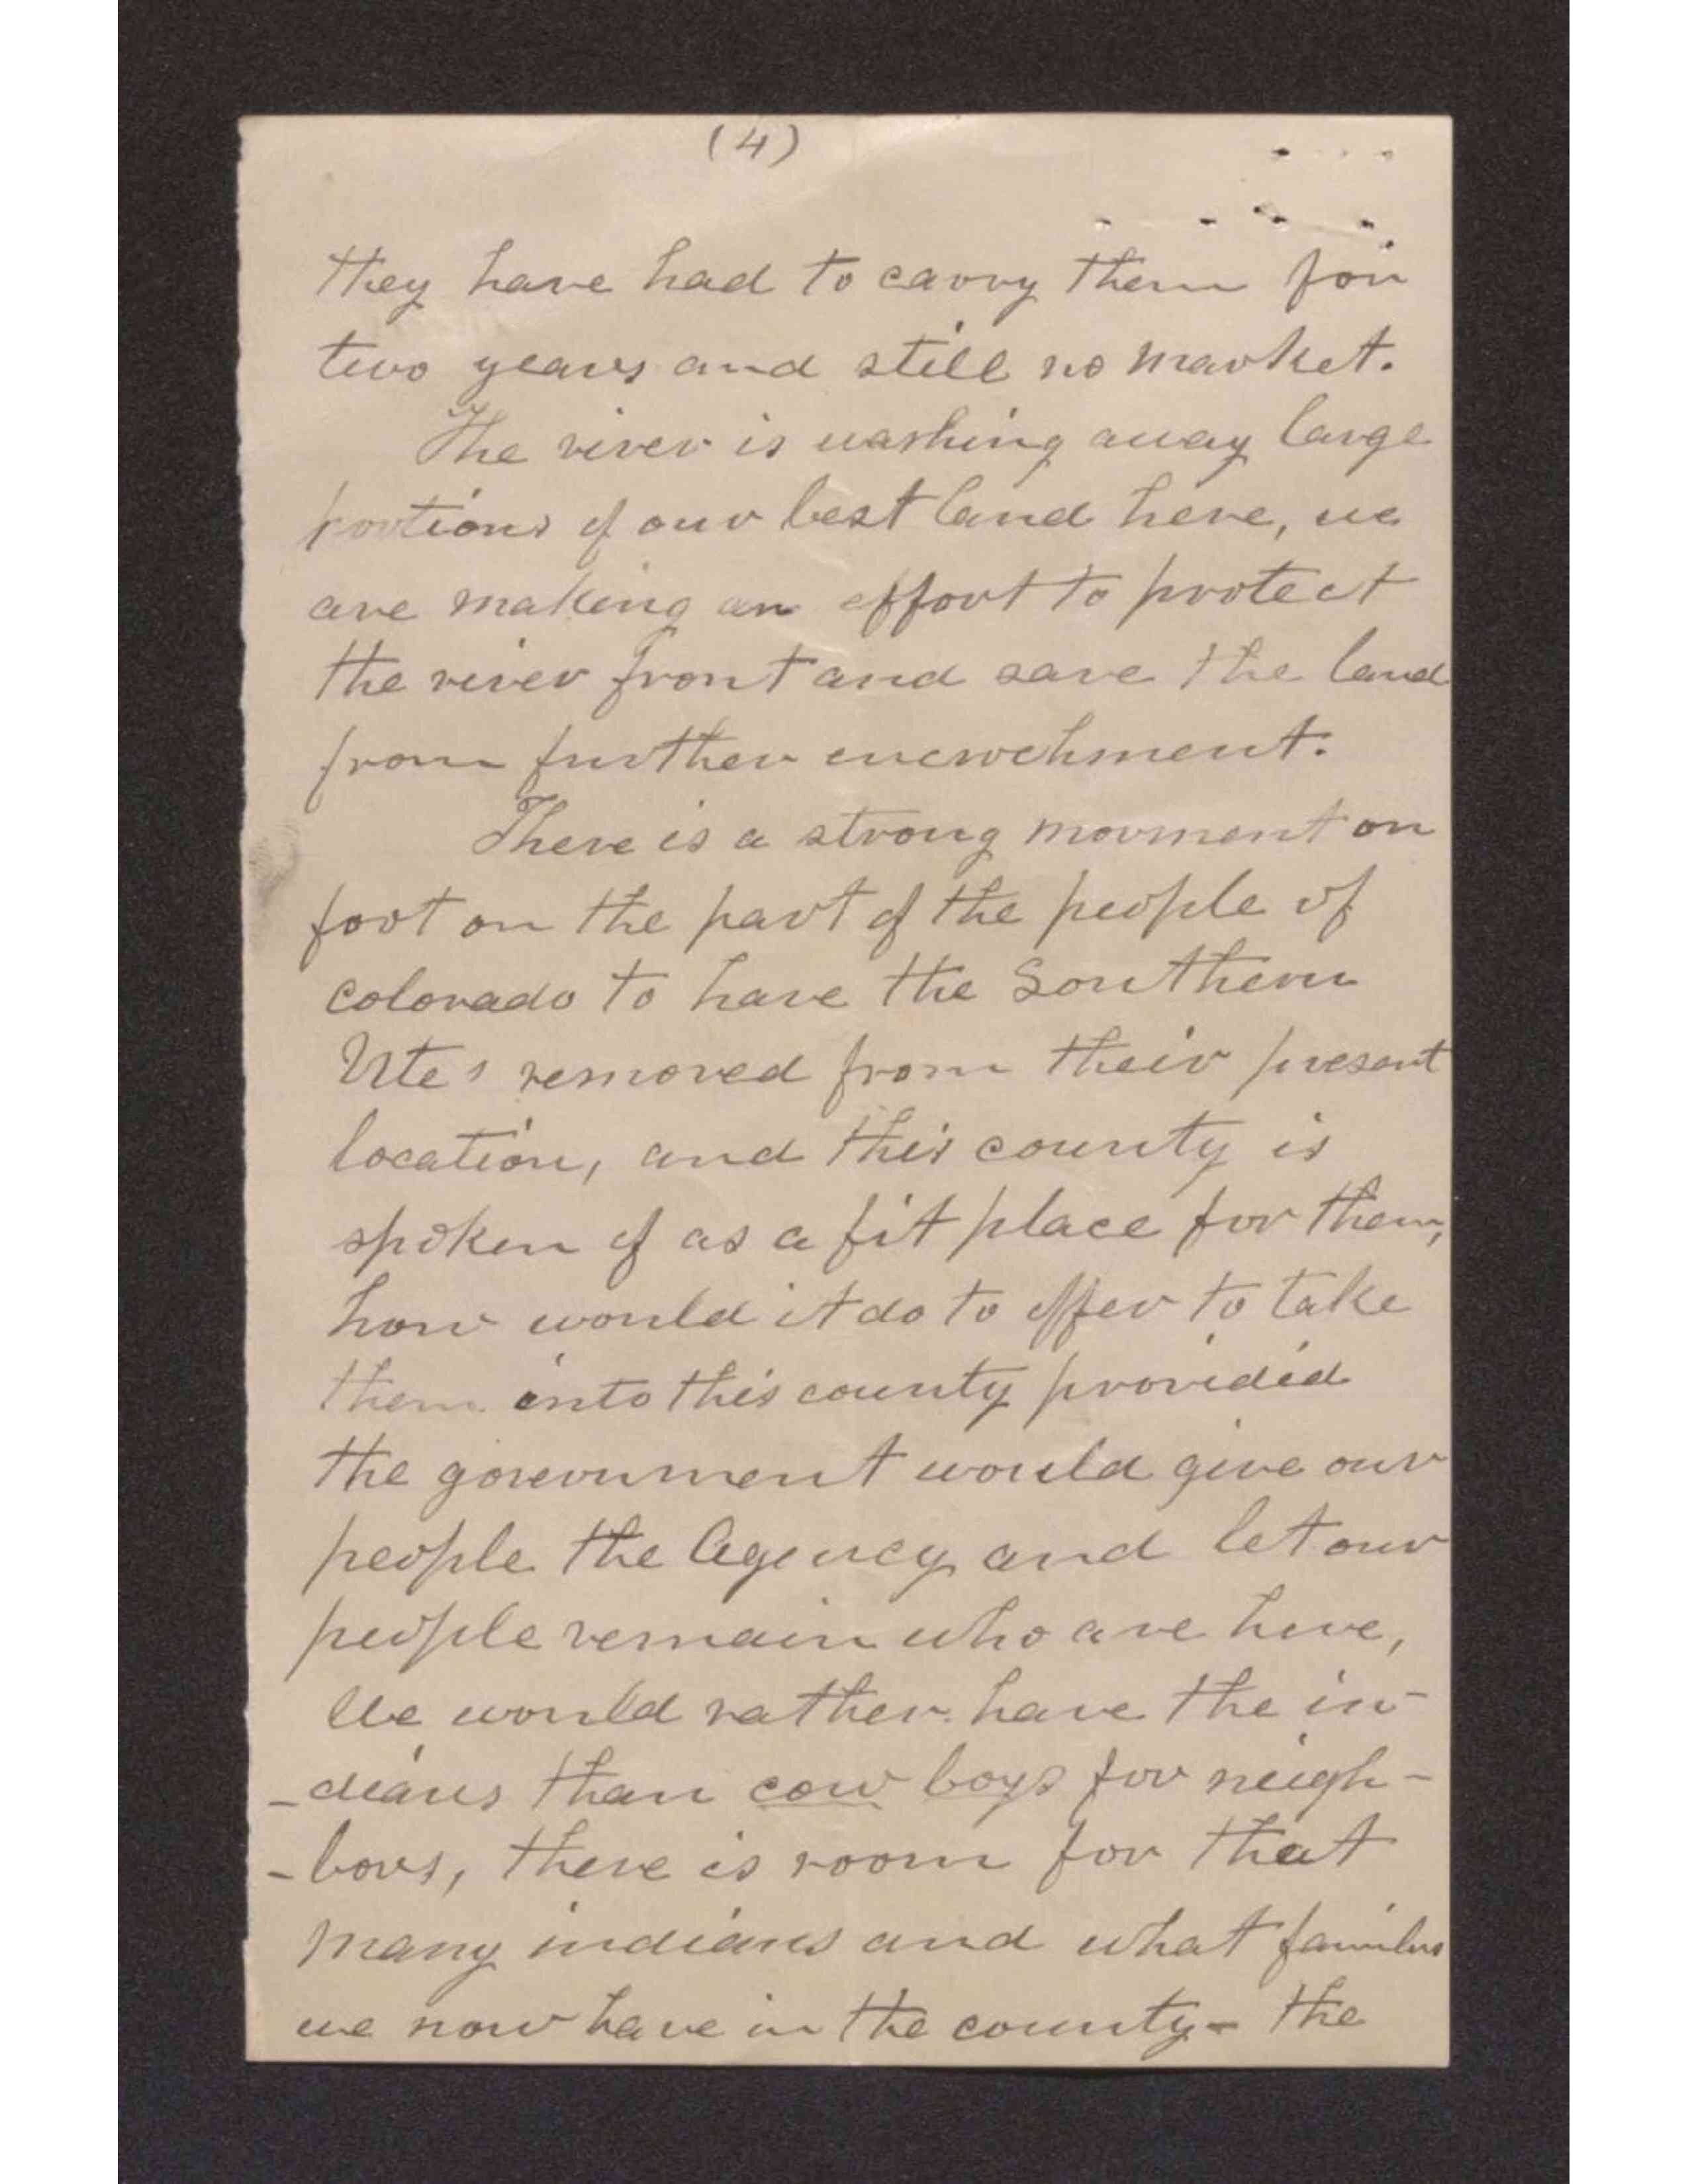 (4)
they have had to carry them for
two years and still no market.
The river is washing away large
portions of our best land here, we
are making an effort to protect
the river front and save the land
from further encrochment.
There is a strong movment on
foot on the part of the people of
colorado to have the Southern
Utes removed from their present
location, and this county is
spoken of as a fit place for them,
how would it do to offer to take
them into this county provided
the government would give our
people the Agency and let our
people remain who are here,
We would rather have the in-
-dians than cow boys for neigh-
-bors, there is room for that
many indians and what families
we now have in the county - the